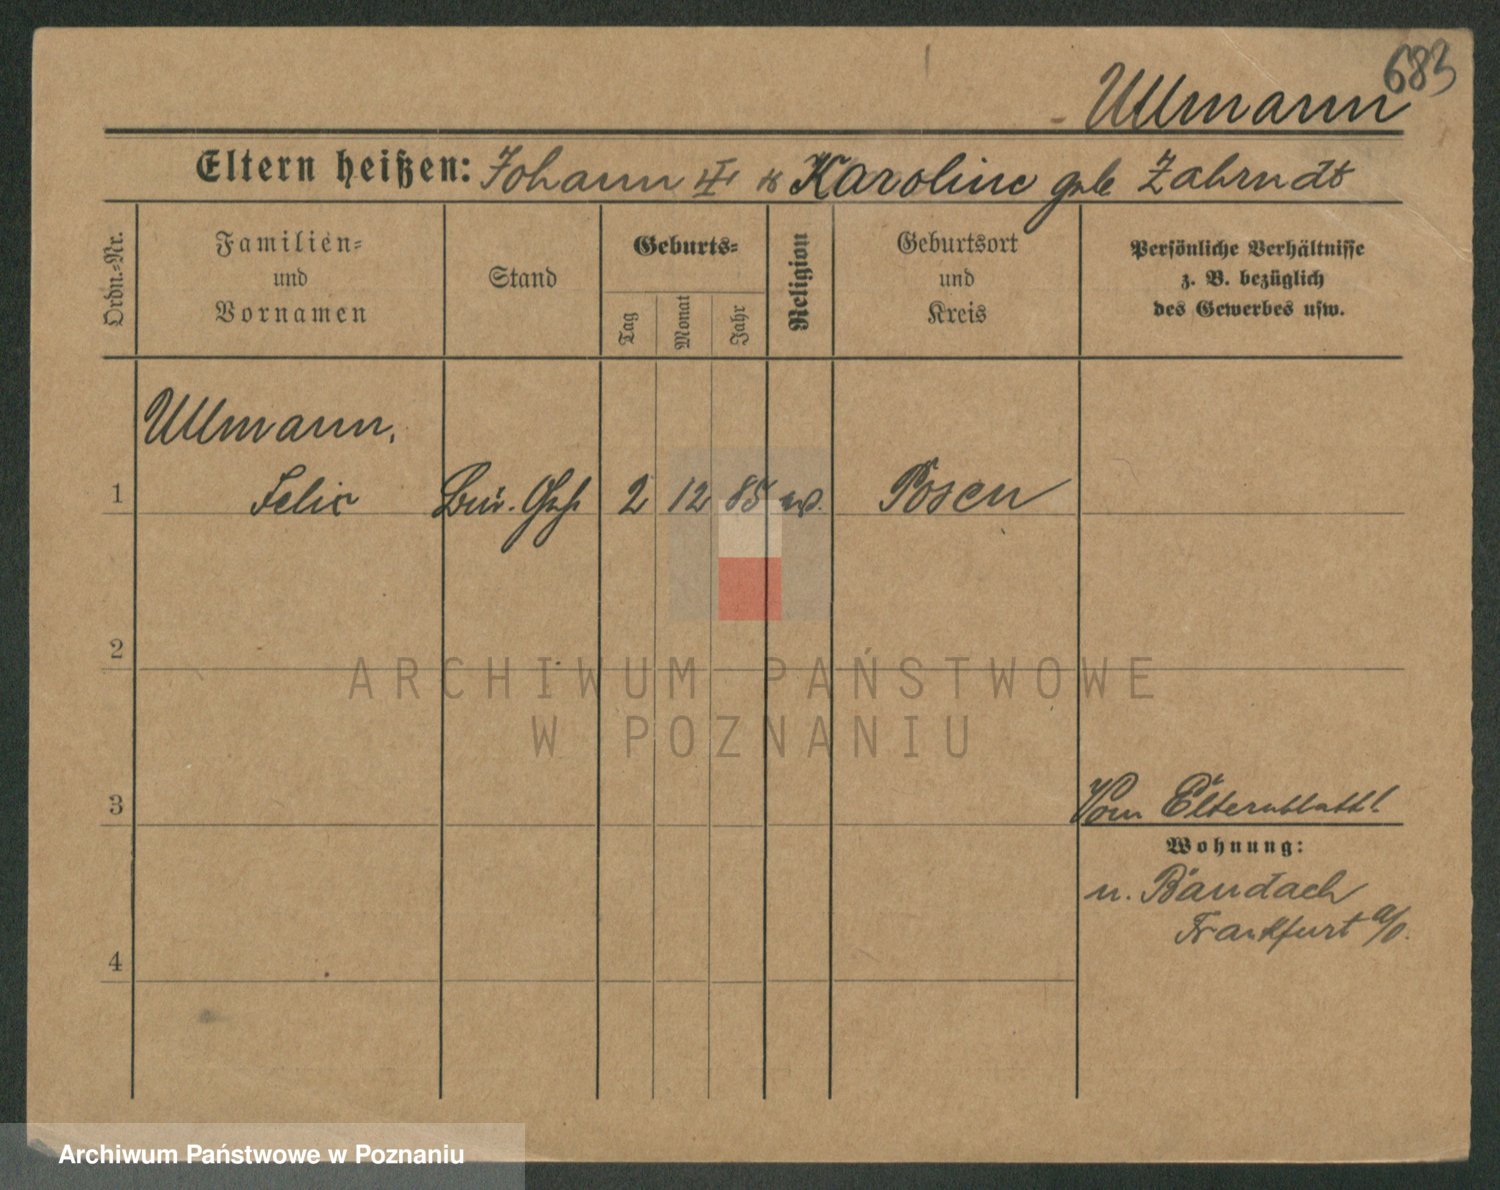 683
Ullmann
Eltern heißen: Johann III & Karoline geb. Zahrndt
Ordn.-Nr.
Familien-
und
Vornamen
Stand
Geburts-
Tag
Monat
Jahr
Religion
Geburtsort
und
Kreis
Persönliche Verhältnisse
z. B. bezüglich
des Gewerbes usw.
Ullmann,
1 Felix Bür. Geh. 2 12 85 ev. Posen
2
ARCHIWUM PAŃSTWOWE
W POZNANIU
3
Vom Elternblatt!
Wohnung:
n. Baudach
Frankfurt a/O.
4
Archiwum Państwowe w Poznaniu